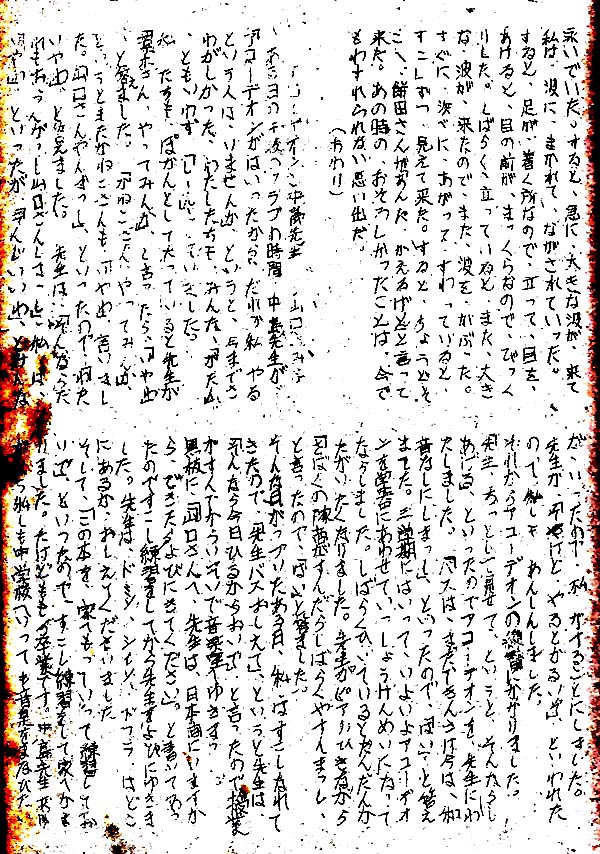 泳いでいた。すると、急に、大きな波が、来て
私は、波に、まかれて、ながされていった。
すると、足が、着く所なので、立って、目を、
あけると、目の前が、まっくらなので、びっく
りした。しばらく立っていると、また、大き
な、波が、来たので、また、波を、かぶった。
すぐに、浜べに、あがって、すわっていると、
すこしずつ、見えて来た。すると、ちょうどそ
こへ、飯田さんがあんた、かえるけどと言って
来た。あの時の、おそろしかったことは、今で
もわすれられない思い出だ。
（おわり）
アコーデオンと中島先生
ある日の午後、クラブの時間、中島先生が、
「アコーデオンがはいったから、だれか
という人は、いませんか」というと、今までさ
わがしかった、わたしたちも、みんな、
ともいわず、「しーん」としていました。
私たちも、ぽかんとして立っていると先生が
さん、やってみんか」と言ったら、「いや」
と答えました。「かねこさん、やってみんか」
というとまたかねこさんも、「いや」と言いまし
た。「山口さんやんまっし」といったので、わた
いや」と答えました。先生は、「そんならだ
山口さんしまっし」私は、
いや」といったが、
が、いったので、私がすることにしました。
先生が、「やるとかるい」といわれた
ので、私しも、あんしんしました。
それからアコーデオンの練習にかかりました。
先生、ちっとし見せて、というと、そんならし
あげる、といったのでアコーデオンを、先生にわ
たしました。「バスは、まだできんさけ今は、和
音なしにしまっし」といったので「はい」と答え
ました。三学期には、いって、いよいよアコーデオ
ンを学芸会にあわせて、いっしょうけんめいになって
ならしました。しばらくひいているとだんだんか
たがいたくなりました。先生がピアノひきながら
「ぼくの伴奏がすんだらしばらくやすんまっし」
と言ったので、「はい」と答えました。
そんな日がつづいたある日、私はすこしなれて
きたので、「先生バスおしえて」というと先生は、
「そんなら今日ひるからおいで」と言ったので授業
がすんでからいそいで音楽室へゆきますと
黒板に「山口さんへ、先生は、日本画にいますか
ら、できたらよびにきてください」と書いてあっ
たのですこし練習をしてから先生をよびにゆきま
した。先生は、ドミソ、シレソ、ドファラ、はどこ
にあるか、おしえてくださいました
そして、「この本を、家へもっていって練習してお
いで」といったので、すこし練習をして家へかえ
りました。だけどももう卒業です。中島先生
私しも中学校へいっても音楽をまなびた